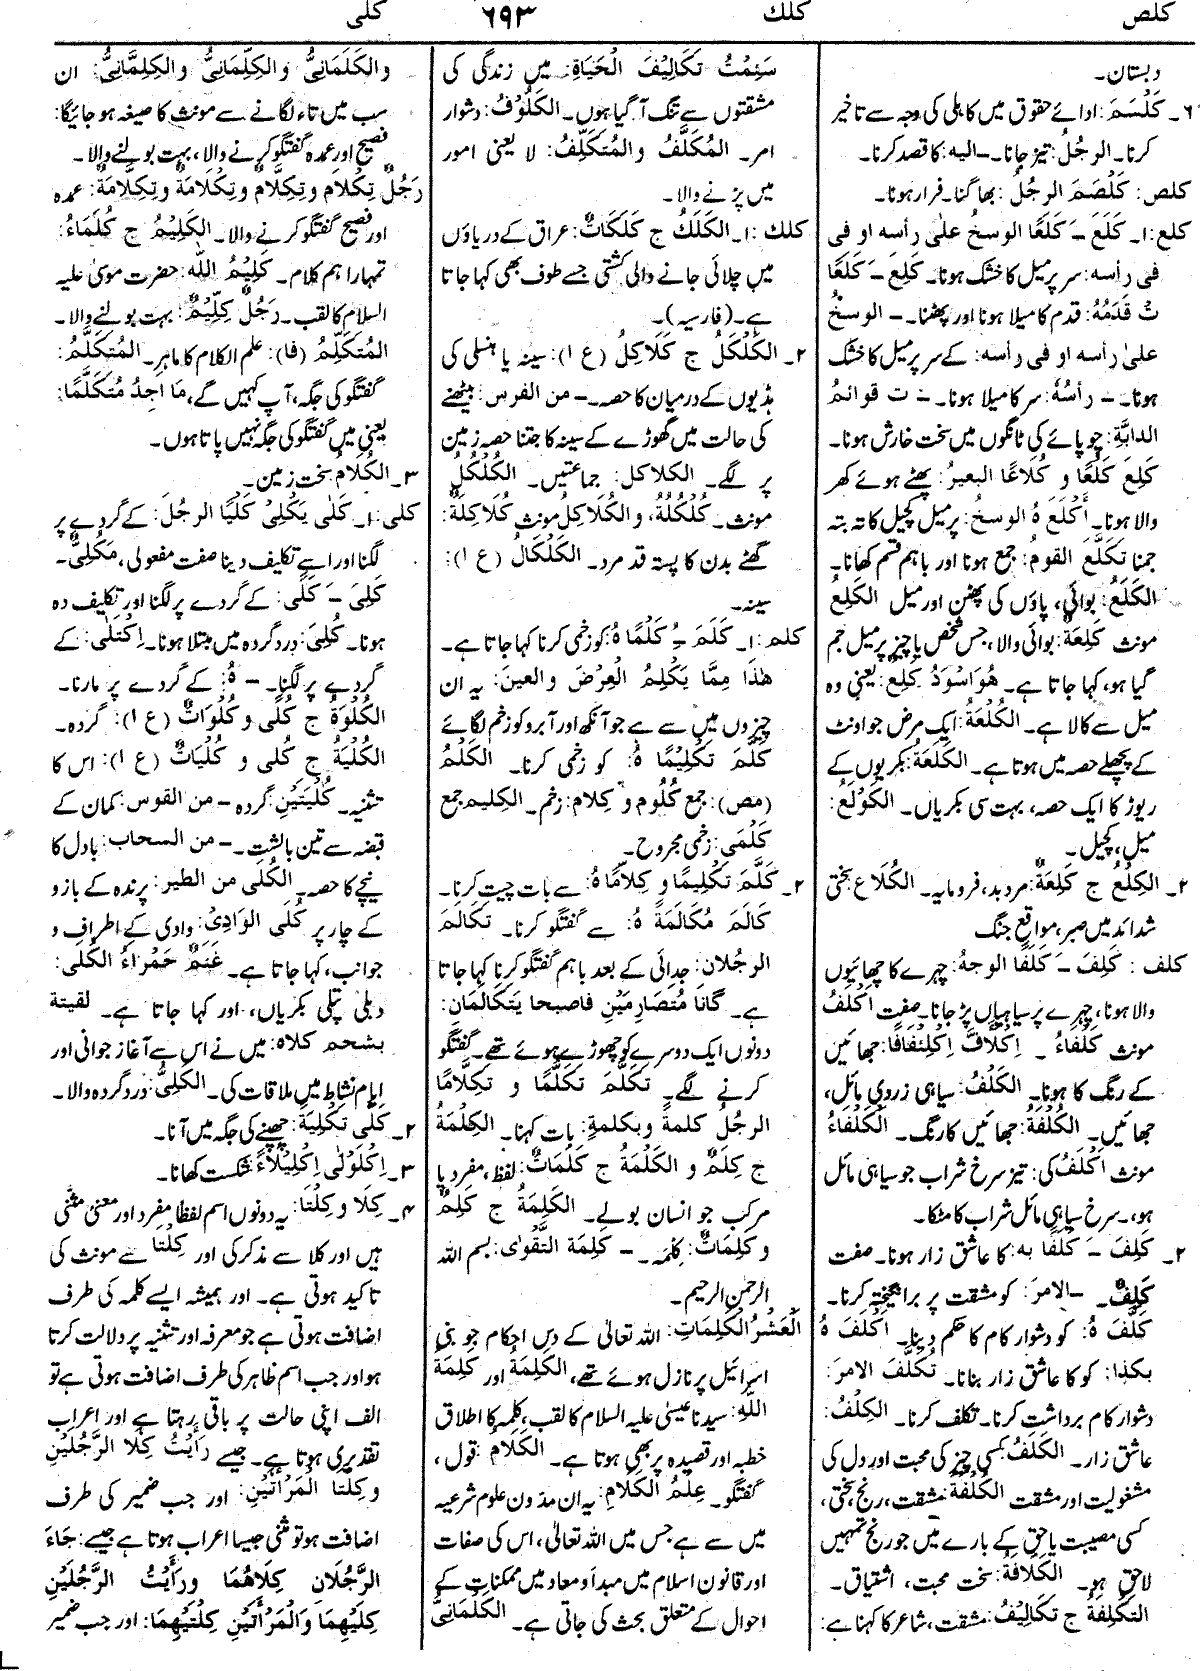 کلص
کلك
۶۹۳
کلی
دبستان۔
۶۔ کَلْسَمَ: ادائے حقوق میں کاہلی کی وجہ سے تاخیر
کرنا۔ الرجُلُ: تیز جانا۔ ــ الیه: کا قصد کرنا۔
کلص: کَلْصَمَ الرجلُ: بھاگنا۔ فرار ہونا۔
کلع: ۱۔ کَلَعَ ــَ کَلَعًا الوسخُ علیٰ رأسه او فی
فی رأسه: سر پر میل کا خشک ہونا۔ کَلِعَ ــَ کَلَعًا
تْ قَدَمُهٗ: قدم کا میلا ہونا اور پھٹنا۔ ــ الوسخُ
علیٰ رأسه او فی رأسه: کے سر پر میل کا خشک
ہونا۔ ــ رأسُهٗ: سر کا میلا ہونا۔ ــ ت قوائمُ
الدابَّةِ: چوپائے کی ٹانگوں میں سخت خارش ہونا۔
کَلِعَ کَلَعًا و کُلَاعًا البعیرُ: پھٹے ہوئے کھر
والا ہونا۔ أَکْلَعَ هُ الوسخُ: پر میل کچیل کا تہ بتہ
جمنا تَکَلَّعَ القومُ: جمع ہونا اور باہم قسم کھانا۔
الکَلَعُ: بوائی، پاؤں کی پھٹن اور میل الکَلِعُ
مونث کَلِعَةٌ: بوائی والا، جس شخص یا چیز پر میل جم
گیا ہو، کہا جاتا ہے۔ هُوَ اَسْوَدُ کَلِعٌ: یعنی وہ
میل سے کالا ہے۔ الکُلْعَةُ: ایک مرض جو اونٹ
کے پچھلے حصہ میں ہوتا ہے۔ الکَلَعَةُ: بکریوں کے
ریوڑ کا ایک حصہ، بہت سی بکریاں۔ الکَوْلَعُ:
میل، کچیل۔
۲۔ الکِلْعُ ج کَلِعَةٌ: مرد بد، فرومایہ۔ الکُلَاعُ سختی
شدائد میں صبر، مواقع جنگ
کلف: کَلِفَ ــَ کَلَفًا الوجهُ: چہرے کا چھائیوں
والا ہونا، چہرے پر سیاہیاں پڑ جانا۔ صفت أَکْلَفُ
مونث کَلْفَاءُ ۔ اِکْلَافَّ اِکْلِئْفَافًا: جھائیں
کے رنگ کا ہونا۔ الکَلَفُ: سیاہی زردی مائل،
جھائیں۔ الکُلْفَةُ: جھائیں کا رنگ۔ الکَلْفَاءُ
مونث اَکْلَفُ کی: تیز سرخ شراب جو سیاہی مائل
ہو، سرخ سیاہی مائل شراب کا مٹکا۔
۲۔ کَلِفَ ــَ کَلَفًا به: کا عاشق زار ہونا۔ صفت
کَلِفٌ۔ ــ الامرَ: کو مشقت پر برانگیختہ کرنا۔
کَلَّفَ هُ: کو دشوار کام کا حکم دینا۔ اَکْلَفَ هُ
بکذا: کو کا عاشق زار بنانا۔ تَکَلَّفَ الامرَ:
دشوار کام برداشت کرنا۔ تکلف کرنا۔ الکِلْفُ:
عاشق زار۔ الکَلَفُ: کسی چیز کی محبت اور دل کی
مشغولیت اور مشقت الکُلْفَةُ مشقت، رنج، سختی،
کسی مصیبت یا حق کے بارے میں جو رنج تمہیں
لاحق ہو۔ الکَلَافَةُ: سخت محبت، اشتیاق۔
التکْلِفَةُ ج تکَالِیْفُ: مشقت، شاعر کا کہنا ہے:
سَئِمْتُ تکَالِیْفَ الْحَیَاةِ: میں زندگی کی
مشقتوں سے تنگ آ گیا ہوں۔ الکَلُوْفُ: دشوار
امر۔ المُکَلَّفُ والمُتکَلِّفُ: لا یعنی امور
میں پڑنے والا۔
کلك: ۱۔ الکَلَكُ ج کَلَکَاتٌ: عراق کے دریاؤں
میں چلائی جانے والی کشتی جسے طوف بھی کہا جاتا
ہے۔ (فارسیہ)۔
۲۔ الکَلْکَلُ ج کَلَاکِلُ (ع ا): سینہ یا ہنسلی کی
ہڈیوں کے درمیان کا حصہ۔ ــ من الفرس: بیٹھنے
کی حالت میں گھوڑے کے سینہ کا جتنا حصہ زمین
پر لگے۔ الکلاکل: جماعتیں۔ الکُلْکُلُ
مونث۔ کُلْکُلَةٌ، والکُلَاکِلُ مونث کُلَاکِلَةٌ:
گٹھے بدن کا پستہ قد مرد۔ الکَلْکَالُ (ع ا):
سینہ۔
کلم: ۱۔ کَلَمَ ــِـُ کَلْمًا هُ: کو زخمی کرنا کہا جاتا ہے۔
هٰذَا مِمَّا یَکْلِمُ الْعِرْضَ والعینَ: یہ ان
چیزوں میں سے ہے جو آنکھ اور آبرو کو زخم لگائے
کَلَّمَ تکْلِیْمًا هُ: کو زخمی کرنا۔ الکَلْمُ
(مص): جمع کُلُوم و کِلام: زخم۔ الکلیم جمع
کَلْمَی: زخمی مجروح۔
۲۔ کَلَّمَ تکْلِیمًا و کِلَّامًا هُ: سے بات چیت کرنا۔
کَالَمَ مُکَالَمَةً هُ: سے گفتگو کرنا۔ تکَالَمَ
الرجُلان: جدائی کے بعد باہم گفتگو کرنا کہا جاتا
ہے۔ کَانَا مُتَصَارِمَیْنِ فاصبحا یَتکَالَمَانِ:
دونوں ایک دوسرے کو چھوڑے ہوئے تھے۔ گفتگو
کرنے لگے۔ تکَلَّمَ تکَلُّمًا و تکِلَّامًا
الرجلُ کلمةً وبکلمةٍ: بات کہنا۔ الکِلْمَةُ
ج کِلَمٌ و الکَلْمَةُ ج کَلْمَاتٌ: لفظ، مفرد یا
مرکب جو انسان بولے۔ الکَلِمَةُ ج کَلِمٌ
و کلِمَاتٌ: کلمہ۔ ــ کَلِمَة التَّقْوٰی: بسم اللہ
الرحمن الرحیم۔
اَلْعَشْرُ الْکَلِمَاتِ: اللہ تعالیٰ کے دس احکام جو بنی
اسرائیل پر نازل ہوئے تھے، الکَلِمَةُ اور کَلِمَةُ
اللّٰهِ: سیدنا عیسیٰ علیہ السلام کا لقب، کلمہ کا اطلاق
خطبہ اور قصیدہ پر بھی ہوتا ہے۔ الکَلَامُ قول،
گفتگو۔ عِلْمُ الْکَلَامِ: یہ ان مدون علوم شرعیہ
میں سے ہے جس میں اللہ تعالیٰ، اس کی صفات
اور قانون اسلام میں مبدأ و معاد میں ممکنات کے
احوال کے متعلق بحث کی جاتی ہے۔ الکَلْمَانِیُّ
والکَلَمَانِیُّ والکِلِّمَانِیُّ والکِلِمَّانِیُّ: ان
سب میں تاء لگانے سے مونث کا صیغہ ہو جائیگا:
فصیح اور عمدہ گفتگو کرنے والا، بہت بولنے والا۔
رَجُلٌ تِکْلَامٌ وتِکِلَّامٌ وتِکْلَامَةٌ وتِکِلَّامَةٌ: عمدہ
اور فصیح گفتگو کرنے والا۔ الکَلِیْمُ ج کُلَمَاءُ:
تمہارا ہم کلام۔ کَلِیْمُ اللّٰهِ: حضرت موسیٰ علیہ
السلام کا لقب۔ رَجُلٌ کِلِّیْمٌ: بہت بولنے والا۔
المُتکَلِّمُ (فا): علم الکلام کا ماہر۔ المُتکَلَّمُ:
گفتگو کی جگہ، آپ کہیں گے، مَا اَجِدُ مُتکَلَّمًا:
یعنی میں گفتگو کی جگہ نہیں پاتا ہوں۔
۳۔ الکُلَامُ سخت زمین۔
کلی: ۱۔ کَلٰی یَکْلِیْ کَلْیًا الرجُلَ: کے گردے پر
لگنا اور اسے تکلیف دینا صفت مفعولی، مَکْلِیٌّ۔
کَلِیَ ــَ کَلًی: کے گردے پر لگنا اور تکلیف دہ
ہونا۔ کُلِیَ: درد گردہ میں مبتلا ہونا۔ اِکْتَلٰی: کے
گردے پر لگنا۔ ــ هُ: کے گردے پر مارنا۔
الکُلْوَةُ ج کُلًی و کُلْوَاتٌ (ع ا): گردہ۔
الکُلْیَةُ ج کُلی و کُلْیَاتٌ (ع ا): اس کا
تثنیہ۔ کُلْیَتَیْنِ: گردہ ــ من القوس: کمان کے
قبضہ سے تین بالشت۔ ــ من السحاب: بادل کا
نیچے کا حصہ۔ الکُلَی من الطیر: پرندہ کے بازو
کے چار پر کُلَی الوَادِیْ: وادی کے اطراف و
جوانب، کہا جاتا ہے۔ غَنَمٌ حَمْرَاءُ الکُلَی:
دبلی پتلی بکریاں، اور کہا جاتا ہے۔ لقیتهٗ
بشحم کلاہ: میں نے اس سے آغاز جوانی اور
ایام نشاط میں ملاقات کی۔ الکَلِیُّ: درد گردہ والا۔
۲۔ کَلّٰی تکْلِیَةً: چھپنے کی جگہ میں آنا۔
۳۔ اِکْلَوْلٰی اِکْلِیْلَاءً شکست کھانا۔
۴۔ کِلَا و کِلْتَا: یہ دونوں اسم لفظا مفرد اور معنی مثنی
ہیں اور کلا سے مذکر کی اور کِلْتَا سے مونث کی
تاکید ہوتی ہے۔ اور ہمیشہ ایسے کلمہ کی طرف
اضافت ہوتی ہے جو معرفہ اور تثنیہ پر دلالت کرتا
ہو اور جب اسم ظاہر کی طرف اضافت ہوتی ہے تو
الف اپنی حالت پر باقی رہتا ہے اور اعراب
تقدیری ہوتا ہے۔ جیسے رَأیْتُ کِلَا الرَّجُلَیْنِ
و کِلْتَا الْمَرْأَتَیْنِ: اور جب ضمیر کی طرف
اضافت ہو تو مثنی جیسا اعراب ہوتا ہے جیسے: جَاءَ
الرَّجُلَانِ کِلَاهُمَا ورَأَیْتُ الرَّجُلَیْنِ
کِلَیْهِمَا وَالْمَرْأَتَیْنِ کِلْتَیْهِمَا: اور جب ضمیر